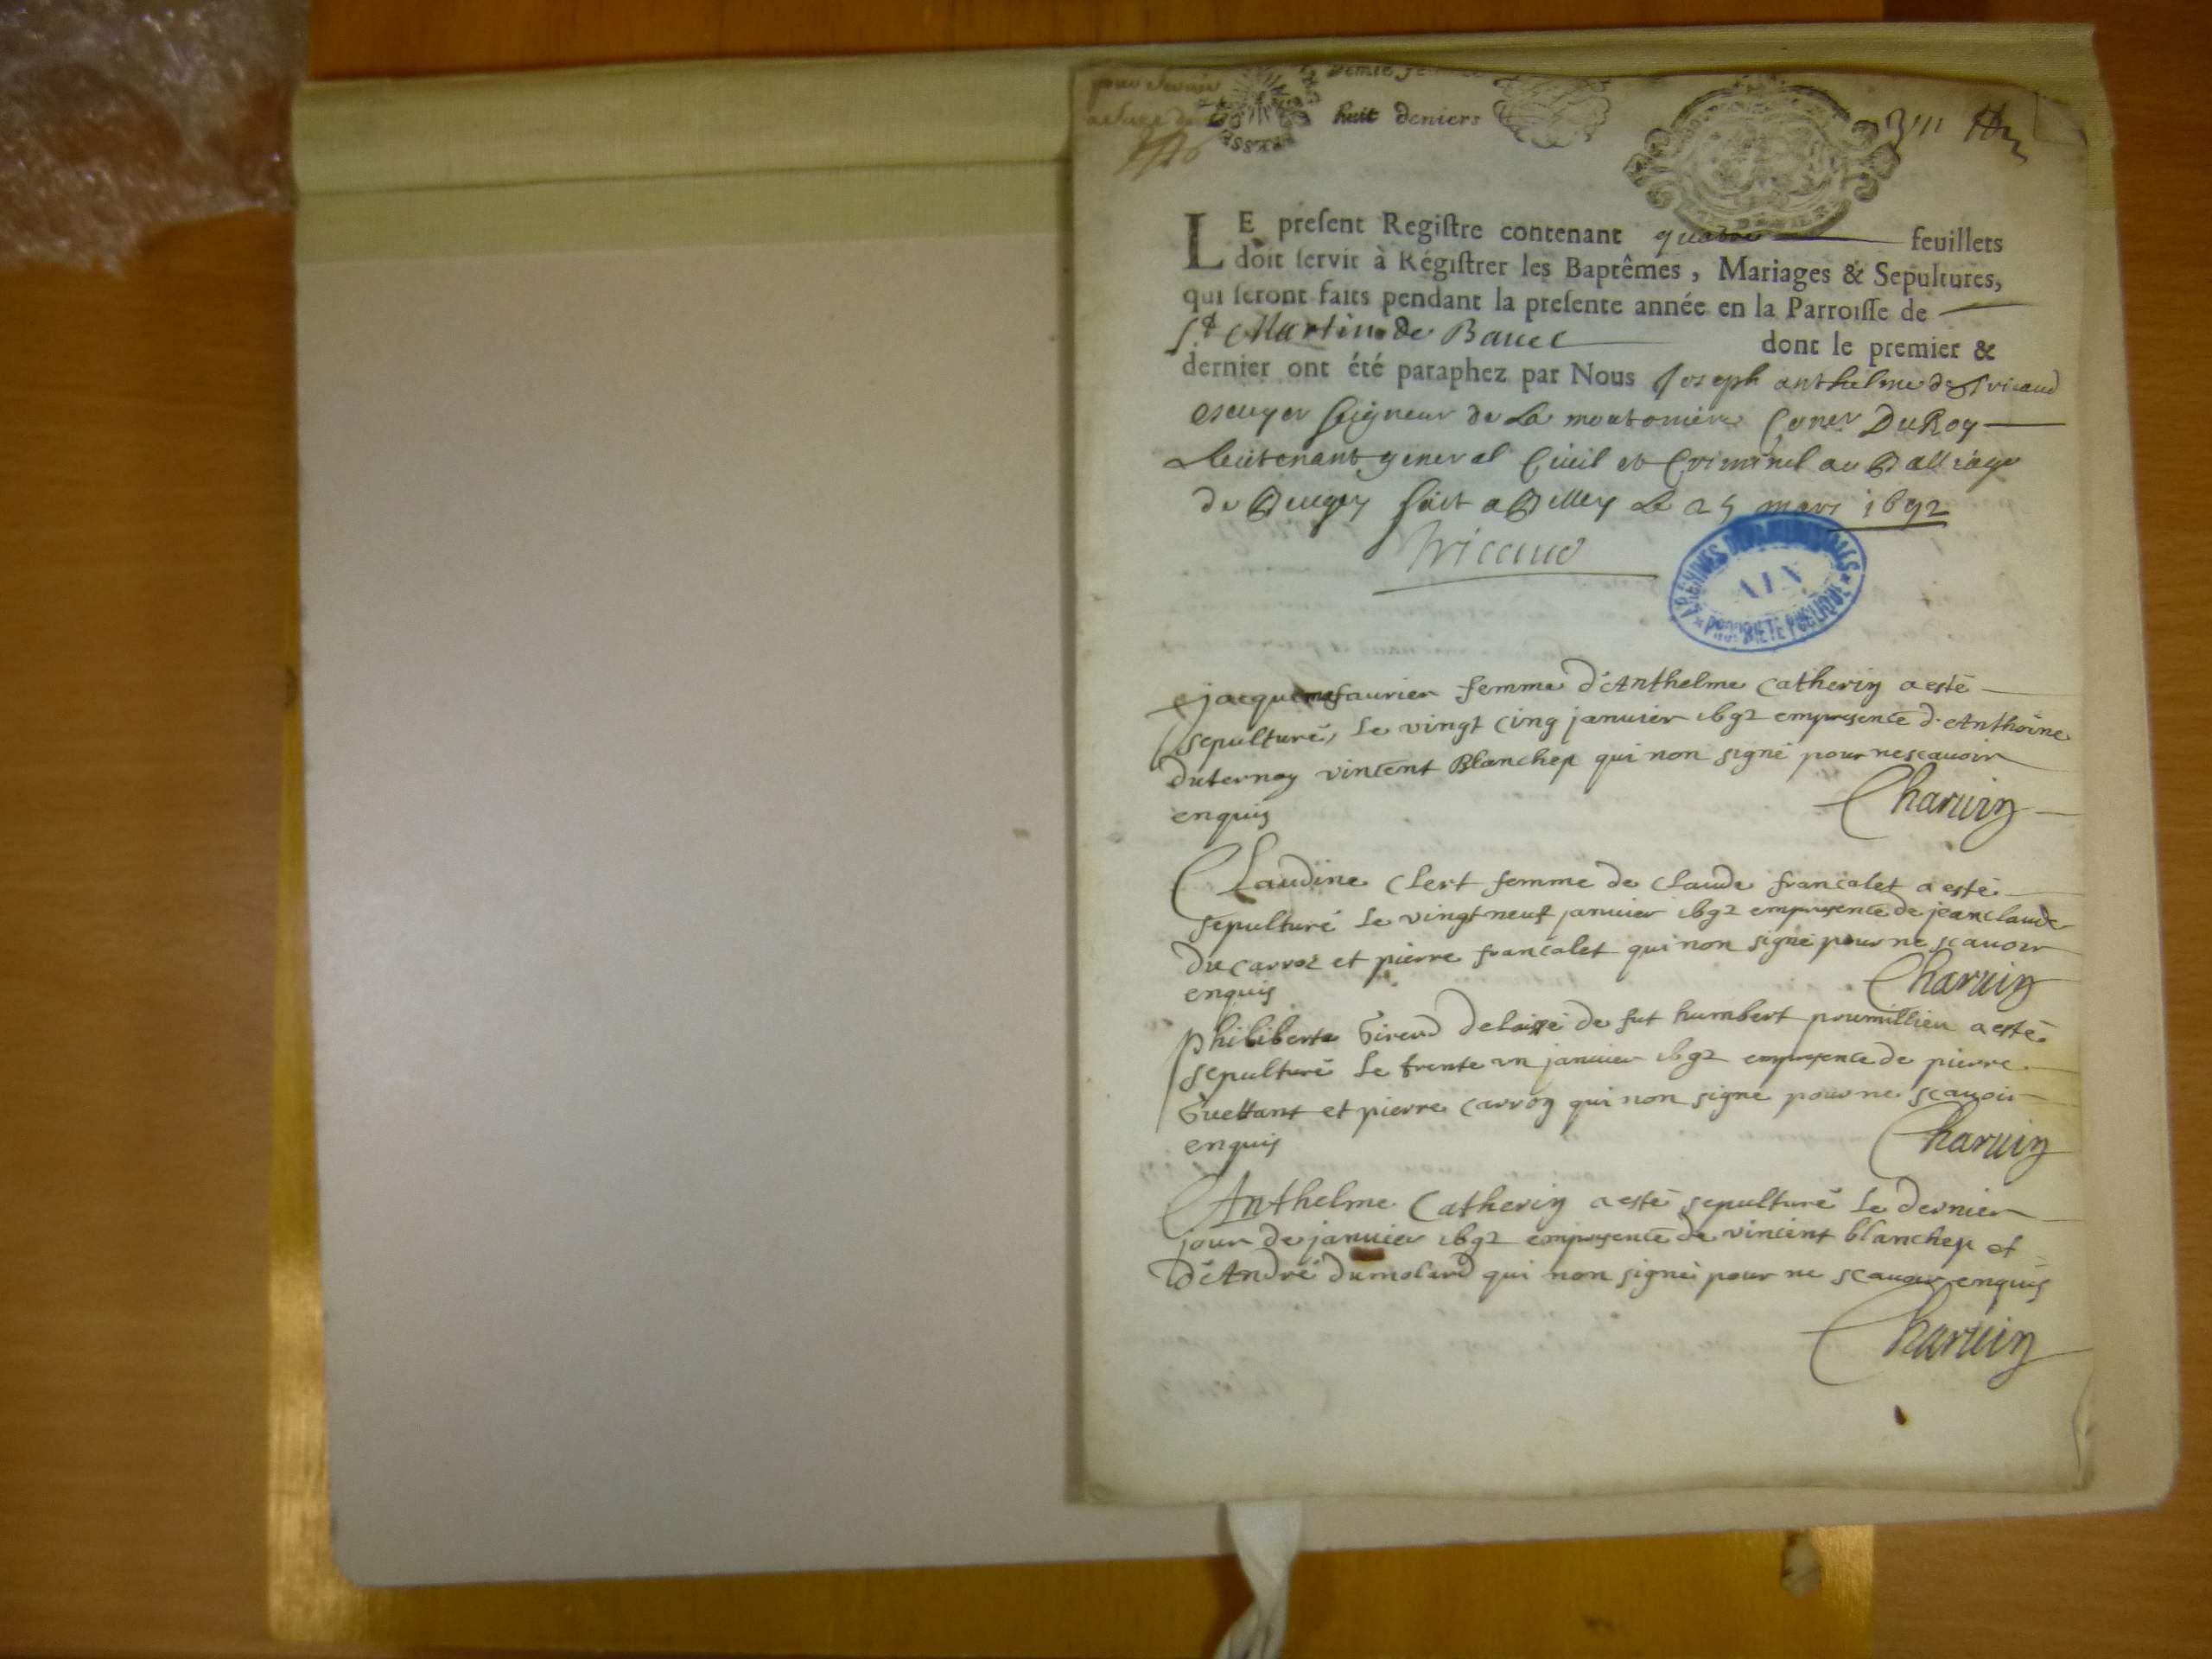 pour servir
Demie feuille
huit deniers
LE preſent Regiſtre contenant quatre feuillets
doit ſervir à Régiſtrer les Baptêmes, Mariages & Sepultures,
qui ſeront faits pendant la preſente année en la Parroiſſe de
St Martin de Bauel dont le premier &
dernier ont été paraphez par Nous Joseph anthelme de Tricaud
escuyer seigneur de La moutoniere Coner Du Roy
Lieutenant general Ciuil et Criminel au Balliage
de Beugey fait a Belley Le 25 mars 1692
Tricaud
ARCHIVES DEPARTEMENTALES
AIN
PROPRIETE PUBLIQUE
jacqueme faurier femme d'Anthelme Catherin a esté
sepulturé, le vingt cinq januier 1692 empresence d'Anthoine
duternoy vincent Blanchep qui non signé pour nescauoir
enquis Charuin
Claudine Clert femme de Claude francalet a esté
sepulturé le vingt neuf januier 1692 empresence de jean claude
du carroz et pierre francalet qui non signé pour ne scauoir
enquis Charuin
philiberte Girerd delaissé de fut humbert poumillieu a esté
sepulturé le trente un januier 1692 empresence de pierre
Guettant et pierre carron qui non signe pour ne scauoir
enquis Charuin
Anthelme Catherin a esté sepulturé le dernier
jour de januier 1692 empresence de vincent blanchep et
d'André dumolard qui non signé pour ne scauoir enquis
Charuin